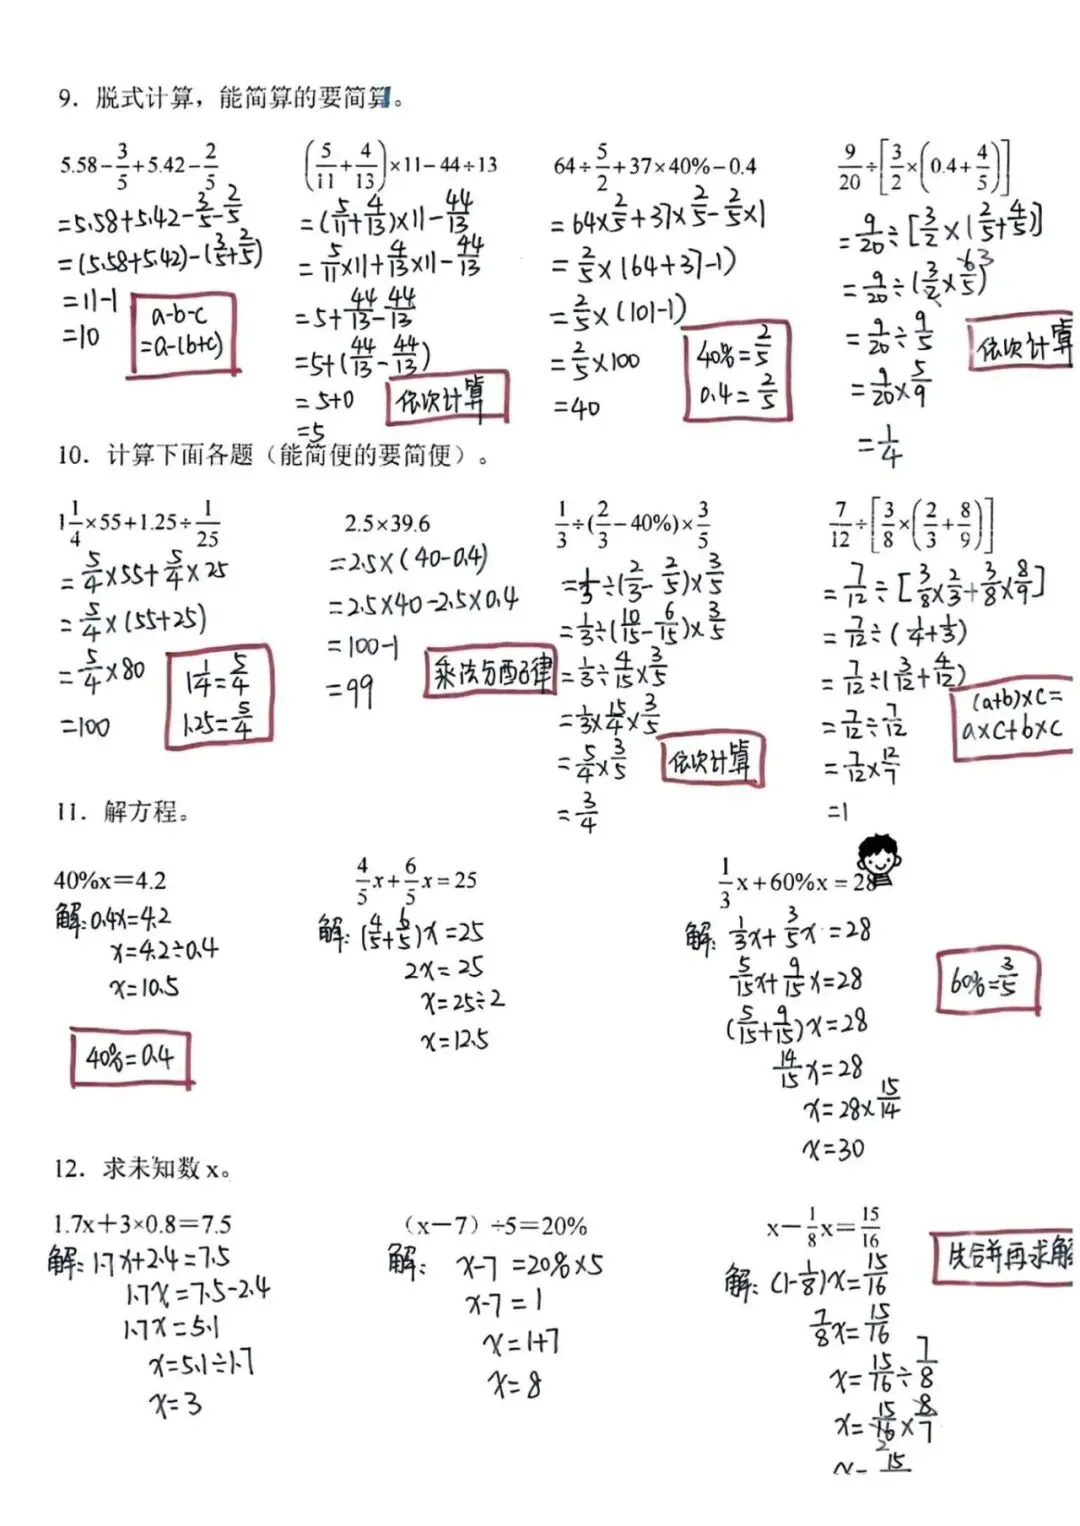 9. 脱式计算，能简算的要简算。
5.58-3/5+5.42-2/5
=5.58+5.42-3/5-2/5
=(5.58+5.42)-(3/5+2/5)
=11-1
=10
a-b-c
=a-(b+c)
(5/11+4/13)×11-44÷13
=(5/11+4/13)×11-44/13
=5/11×11+4/13×11-44/13
=5+44/13-44/13
=5+(44/13-44/13)
=5+0
=5
依次计算
64÷5/2+37×40%-0.4
=64×2/5+37×2/5-2/5×1
=2/5×(64+37-1)
=2/5×(101-1)
=2/5×100
=40
40%=2/5
0.4=2/5
9/20÷[3/2×(0.4+4/5)]
=9/20÷[3/2×(2/5+4/5)]
=9/20÷(3/2×6/5)
=9/20÷9/5
=9/20×5/9
=1/4
依次计算
10. 计算下面各题（能简便的要简便）。
1 1/4×55+1.25÷1/25
=5/4×55+5/4×25
=5/4×(55+25)
=5/4×80
=100
1 1/4=5/4
1.25=5/4
2.5×39.6
=2.5×(40-0.4)
=2.5×40-2.5×0.4
=100-1
=99
乘法分配律
1/3÷(2/3-40%)×3/5
=1/3÷(2/3-2/5)×3/5
=1/3÷(10/15-6/15)×3/5
=1/3÷4/15×3/5
=1/3×15/4×3/5
=5/4×3/5
=3/4
依次计算
7/12÷[3/8×(2/3+8/9)]
=7/12÷[3/8×2/3+3/8×8/9]
=7/12÷(1/4+1/3)
=7/12÷(3/12+4/12)
=7/12÷7/12
=7/12×12/7
=1
(a+b)×c=
a×c+b×c
11. 解方程。
40%x=4.2
解:0.4x=4.2
x=4.2÷0.4
x=10.5
40%=0.4
4/5x+6/5x=25
解:(4/5+6/5)x=25
2x=25
x=25÷2
x=12.5
1/3x+60%x=28
解:1/3x+3/5x=28
5/15x+9/15x=28
(5/15+9/15)x=28
14/15x=28
x=28×15/14
x=30
60%=3/5
12. 求未知数 x。
1.7x+3×0.8=7.5
解:1.7x+2.4=7.5
1.7x=7.5-2.4
1.7x=5.1
x=5.1÷1.7
x=3
（x-7）÷5=20%
解: x-7=20%×5
x-7=1
x=1+7
x=8
x-1/8x=15/16
解:(1-1/8)x=15/16
7/8x=15/16
x=15/16÷7/8
x=15/16×8/7
x=15
先合并再求解